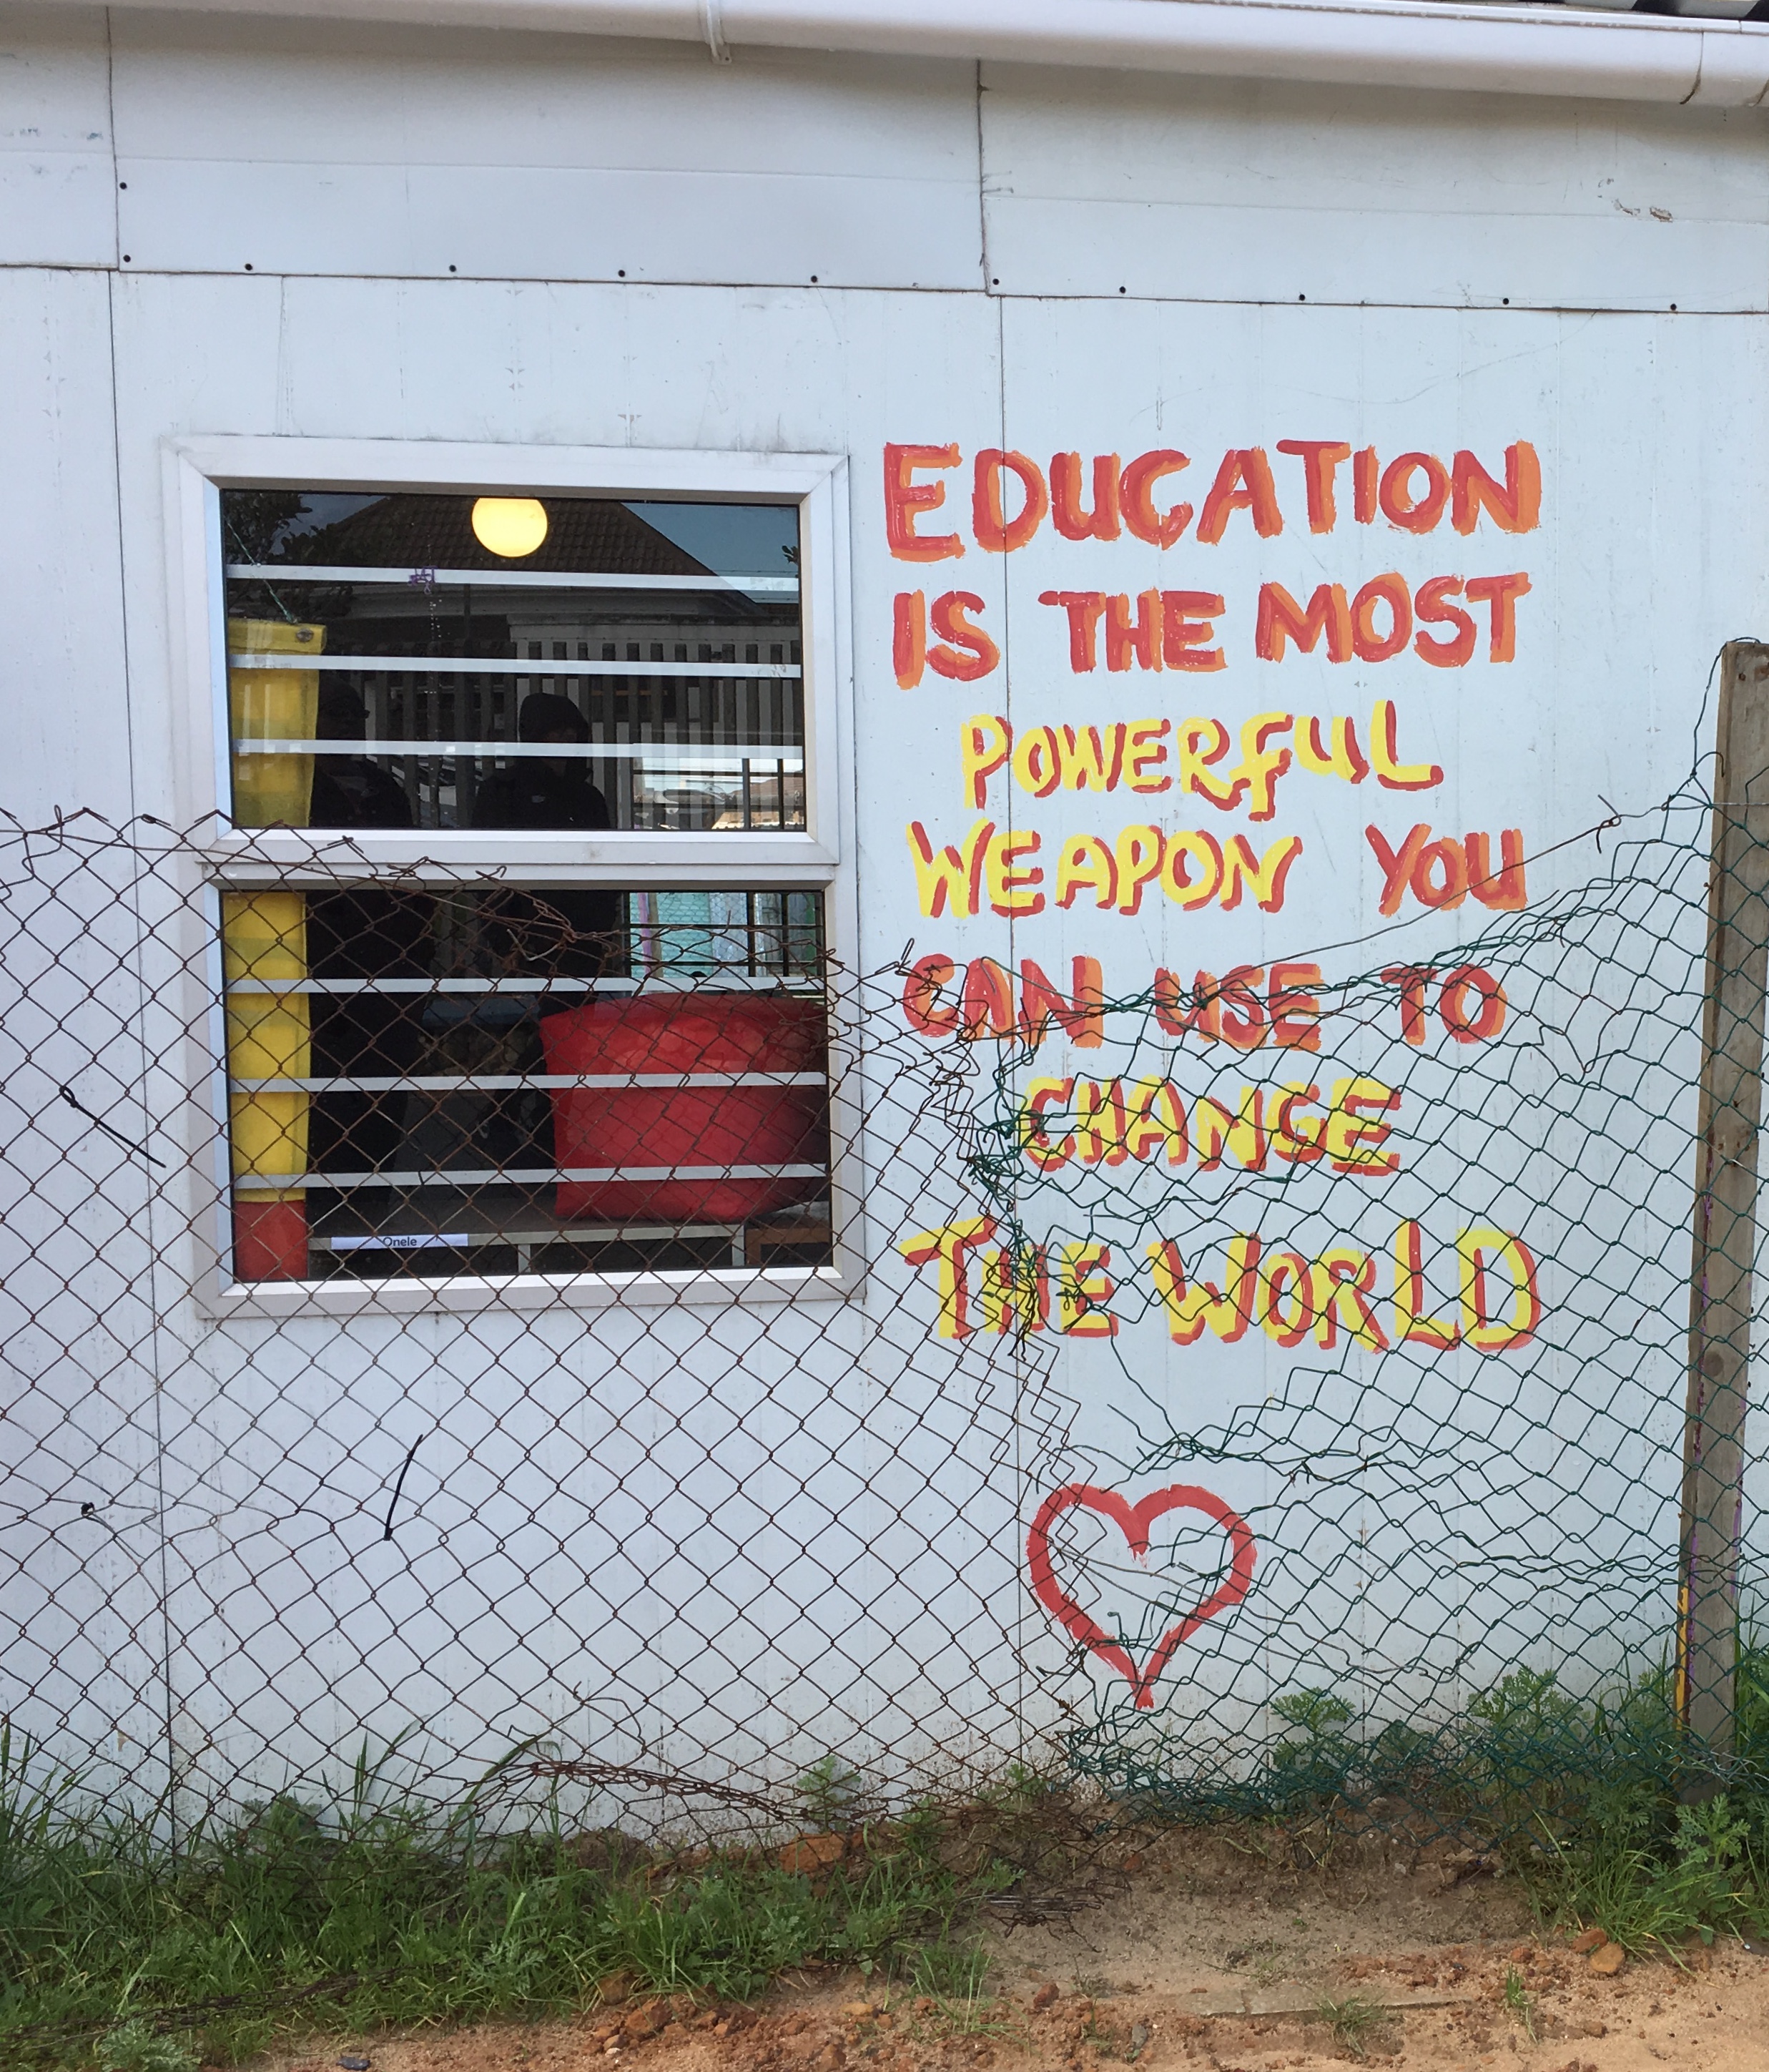 EDUCATION
IS THE MOST
POWERFUL
WEAPON YOU
CAN USE TO
CHANGE
THE WORLD
Onele